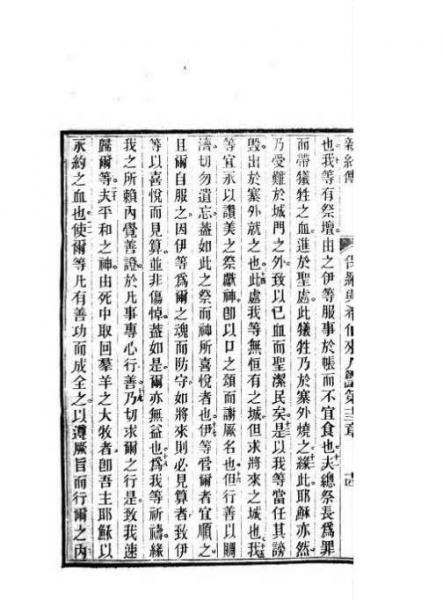 新約傳
者顯與希伯來人論第十三章 十四
也我等有祭壇由之伊等服事於帳而不宜食也夫總祭長爲罪
而帶犧牲之血進於聖處此犧牲乃於寨外燒之緣此耶穌亦然
乃受難於城門之外致以己血而聖潔民矣是以我等當任其謗
毀出於寨外就之也此處我等無恒有之城但求將來之城也我
等宜永以讚美之祭獻神卽以口之頌而謝厥名也但行善以賙
濟切勿遺忘蓋如此之祭而神所喜悅者也伊等管爾者宜順之
且爾自服之因伊等爲爾之魂而防守如將來則必見算者致伊
等以喜悅而見算並非傷悼蓋如是爾亦無益也爲我等祈禱緣
我之所賴內覺善證於凡事專心行善乃切求爾之行是致我速
歸爾等夫平和之神由死中取回羣羊之大牧者卽吾主耶穌以
永約之血也使爾等凡有善功而成全之以遵厥旨而行爾之內